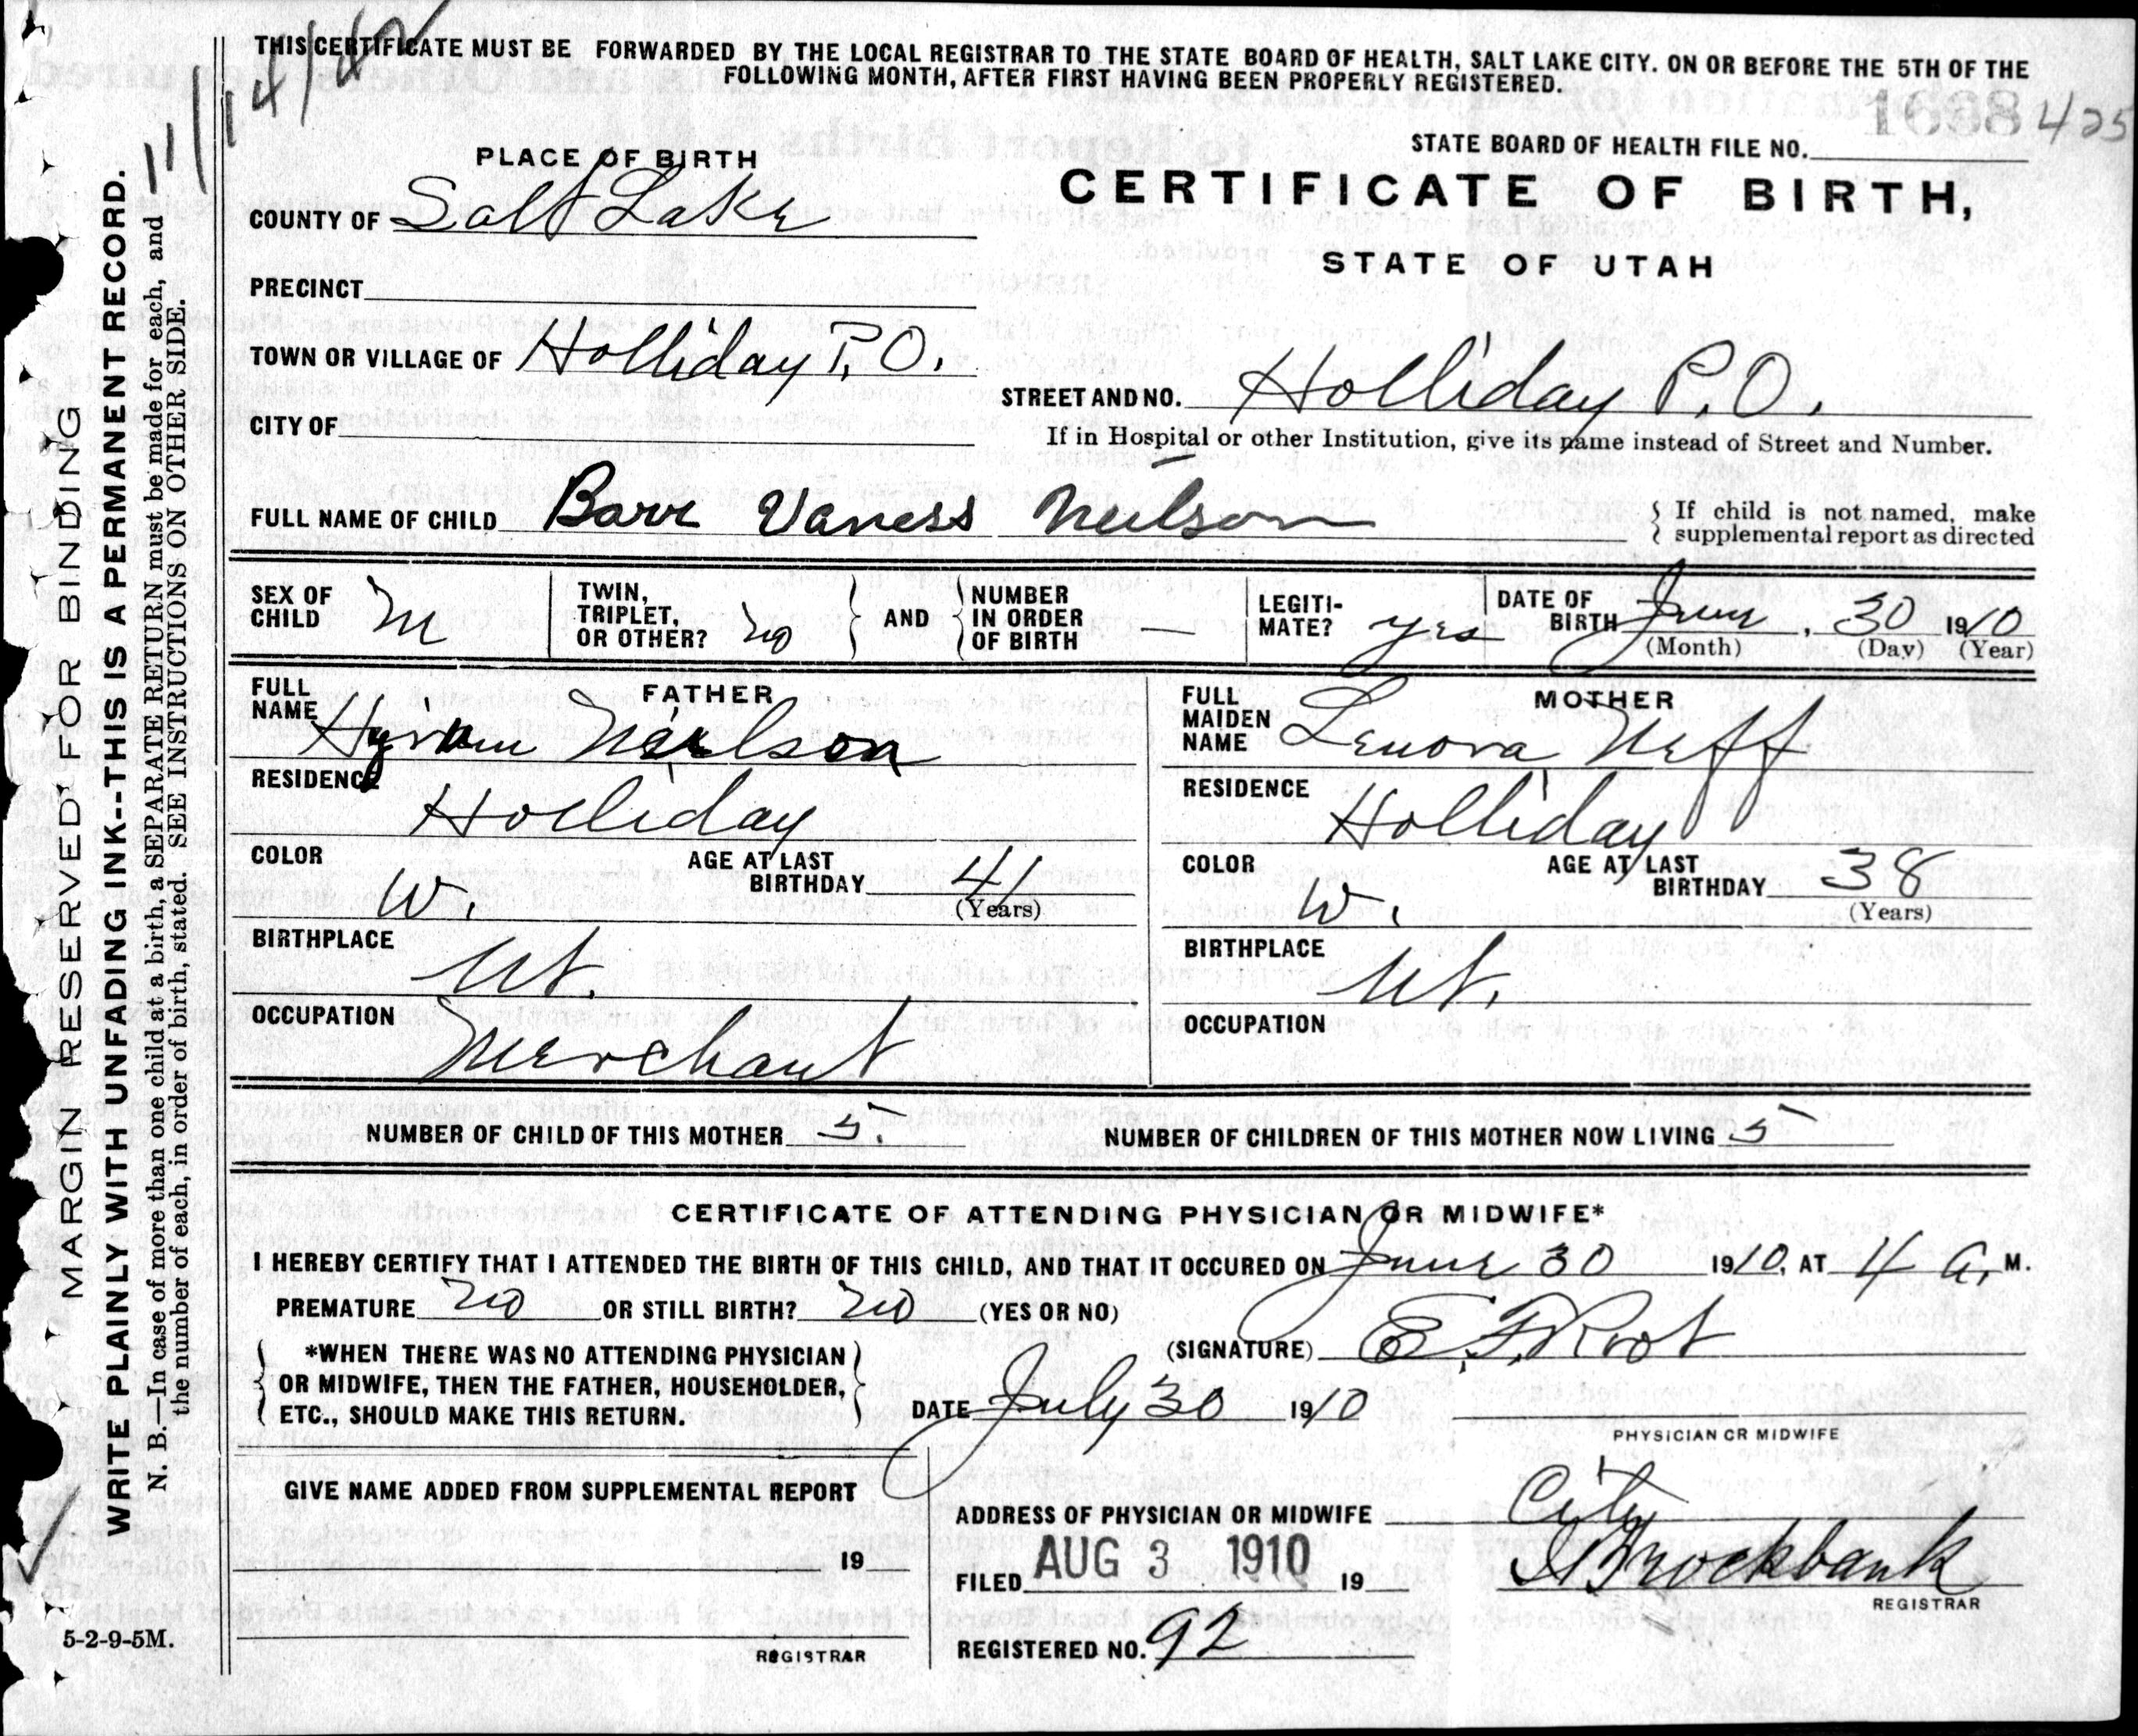 THIS CERTIFICATE MUST BE FORWARDED BY THE LOCAL REGISTRAR TO THE STATE BOARD OF HEALTH, SALT LAKE CITY. ON OR BEFORE THE 5TH OF THE
FOLLOWING MONTH, AFTER FIRST HAVING BEEN PROPERLY REGISTERED.
425
STATE BOARD OF HEALTH FILE NO.
PLACE OF BIRTH
CERTIFICATE OF BIRTH,
COUNTY OF Salt Lake
STATE OF UTAH
PRECINCT
TOWN OR VILLAGE OF Holliday P.O.
STREET AND NO. Holliday P.O.
CITY OF
If in Hospital or other Institution, give its name instead of Street and Number.
FULL NAME OF CHILD Barr Vaness Neilson
{ If child is not named, make
{ supplemental report as directed
SEX OF CHILD M
TWIN, TRIPLET, OR OTHER? no } AND { NUMBER IN ORDER OF BIRTH —
LEGITI-MATE? yes
DATE OF BIRTH June, 30 1910
(Month) (Day) (Year)
FATHER
FULL NAME Hyrum Neilson
RESIDENCE Holliday
COLOR W. AGE AT LAST BIRTHDAY 41
(Years)
BIRTHPLACE Ut.
OCCUPATION Merchant
MOTHER
FULL MAIDEN NAME Lenora Neff
RESIDENCE Holliday
COLOR W. AGE AT LAST BIRTHDAY 38
(Years)
BIRTHPLACE Ut.
OCCUPATION
NUMBER OF CHILD OF THIS MOTHER 5. NUMBER OF CHILDREN OF THIS MOTHER NOW LIVING 5
CERTIFICATE OF ATTENDING PHYSICIAN OR MIDWIFE*
I HEREBY CERTIFY THAT I ATTENDED THE BIRTH OF THIS CHILD, AND THAT IT OCCURED ON June 30 1910, AT 4 a. M.
PREMATURE no OR STILL BIRTH? no (YES OR NO)
(SIGNATURE) E. F. Root
{ *WHEN THERE WAS NO ATTENDING PHYSICIAN }
{ OR MIDWIFE, THEN THE FATHER, HOUSEHOLDER, }
{ ETC., SHOULD MAKE THIS RETURN. }
DATE July 30 1910
PHYSICIAN OR MIDWIFE
GIVE NAME ADDED FROM SUPPLEMENTAL REPORT
19
REGISTRAR
ADDRESS OF PHYSICIAN OR MIDWIFE City
FILED AUG 3 1910 19
Brockbank
REGISTRAR
REGISTERED NO. 92
MARGIN RESERVED FOR BINDING
WRITE PLAINLY WITH UNFADING INK--THIS IS A PERMANENT RECORD.
N. B.—In case of more than one child at a birth, a SEPARATE RETURN must be made for each, and
the number of each, in order of birth, stated. SEE INSTRUCTIONS ON OTHER SIDE.
5-2-9-5M.